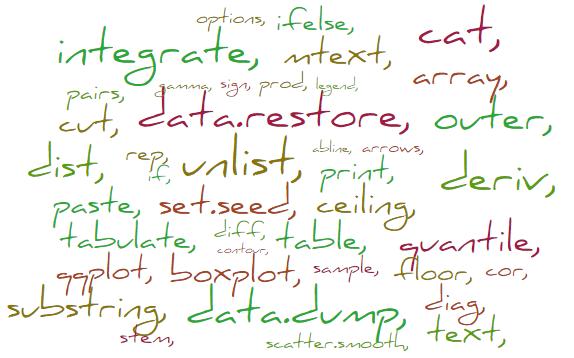 options, ifelse, cat,
integrate, mtext,
pairs, gamma, sign, prod, legend, array,
cut, data.restore, outer,
dist, rep, if, unlist, abline, arrows, print, deriv,
paste, set.seed, ceiling,
tabulate, diff, table, quantile,
contour,
qqplot, boxplot, sample, floor, cor,
substring, data.dump, diag,
stem, scatter.smooth, text,